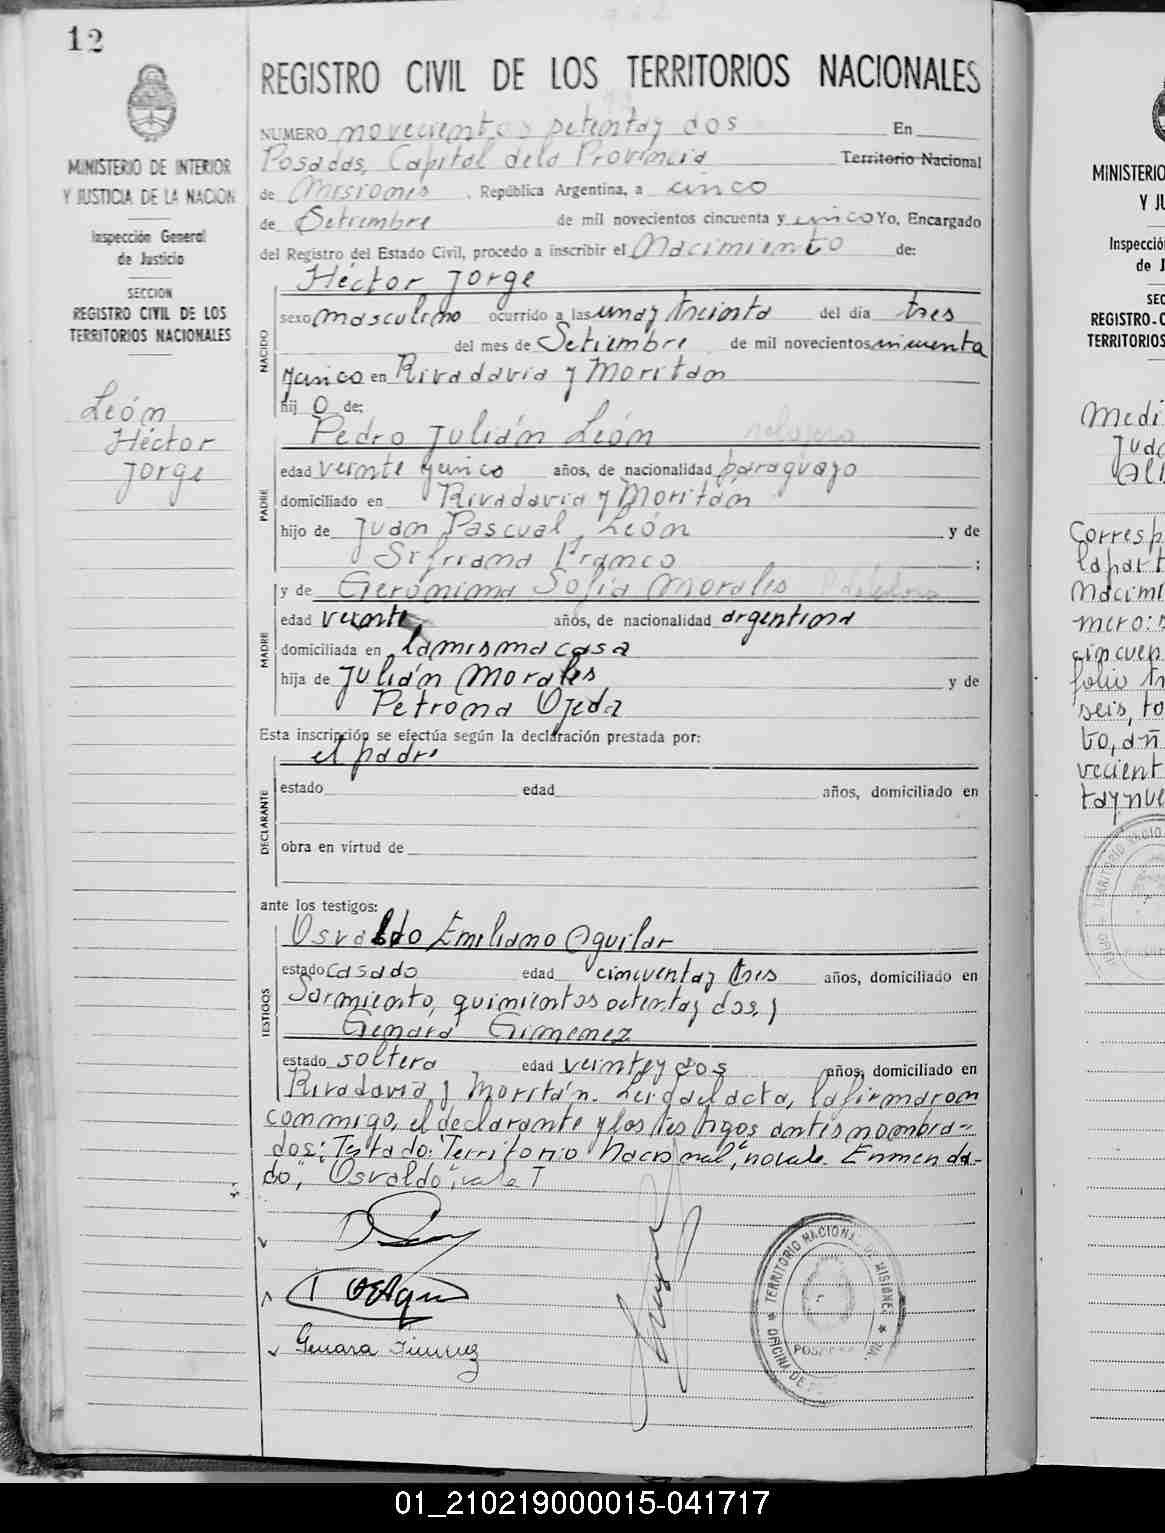 12
REGISTRO CIVIL DE LOS TERRITORIOS NACIONALES
MINISTERIO DE INTERIOR
Y JUSTICIA DE LA NACION
Inspección General
de Justicia
SECCION
REGISTRO CIVIL DE LOS
TERRITORIOS NACIONALES
León
Héctor
Jorge
NUMERO novecientos setenta y dos En
Posadas, Capital de la Provincia Territorio Nacional
de Misiones, República Argentina, a cinco
de Setiembre de mil novecientos cincuenta y cinco Yo, Encargado
del Registro del Estado Civil, procedo a inscribir el Nacimiento de:
NACIDO
Héctor Jorge
sexo masculino ocurrido a las una y treinta del día tres
del mes de Setiembre de mil novecientos cincuenta
y cinco en Rivadavia y Moritan
hij o de:
PADRE
Pedro Julián León relojero
edad veinte y cinco años, de nacionalidad paraguayo
domiciliado en Rivadavia y Moritán
hijo de Juan Pascual León y de
Franco ;
MADRE
y de Gerónima Sofía Morales
edad veinte años, de nacionalidad argentina
domiciliada en la misma casa
hija de Julián Morales y de
Petrona Ojeda
Esta inscripción se efectúa según la declaración prestada por:
el padre
DECLARANTE
estado edad años, domiciliado en
obra en virtud de
ante los testigos:
TESTIGOS
Osvaldo Emiliano Aguilar
estado casado edad cincuenta y tres años, domiciliado en
Sarmiento, quinientos ochenta y dos, y
Genara Gimenez
estado soltera edad veinte y dos años, domiciliado en
Rivadavia y Moritán. Leída el acta, la firmaron
conmigo, el declarante y los testigos antes nombra-
dos: Testado: "Territorio Nacional", no vale. Enmenda-
do, "Osvaldo", vale
Genara Jimenez
TERRITORIO NACIONAL DE MISIONES
OFICINA DE
POSADAS
MINISTERIO
Y JU
Inspecció
de J
SEC
REGISTRO C
TERRITORIOS
Medi
Juda
Corresp
la part
nacimi
mero:
cincuen
folio tr
seis, to
to, añ
vecient
ta y nue
01_210219000015-041717